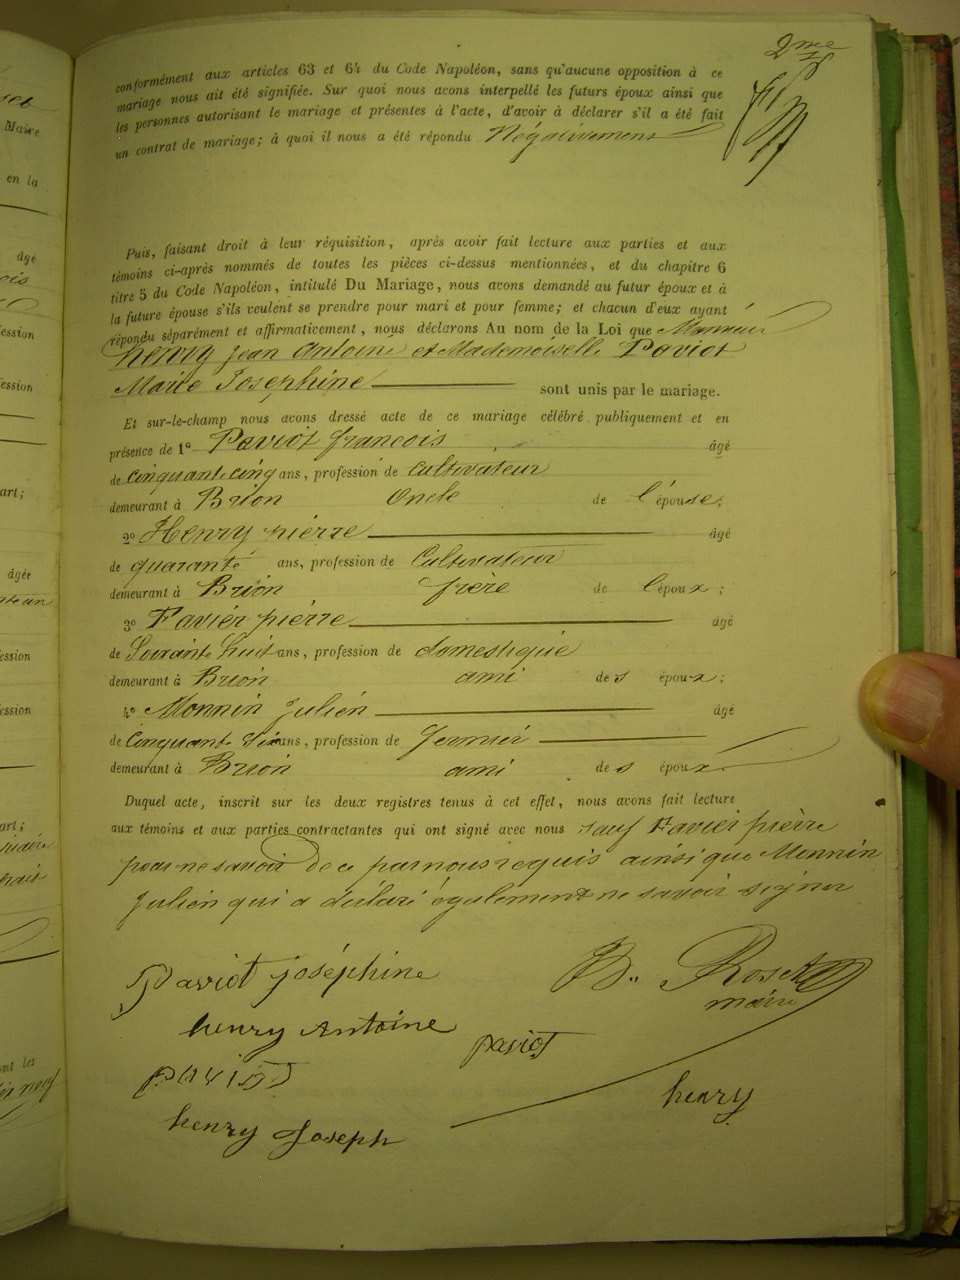 2me
conformément aux articles 63 et 64 du Code Napoléon, sans qu'aucune opposition à ce
mariage nous ait été signifiée. Sur quoi nous avons interpellé les futurs époux ainsi que
les personnes autorisant le mariage et présentes à l'acte, d'avoir à déclarer s'il a été fait
un contrat de mariage; à quoi il nous a été répondu Négativement
Puis, faisant droit à leur réquisition, après avoir fait lecture aux parties et aux
témoins ci-après nommés de toutes les pièces ci-dessus mentionnées, et du chapitre 6
titre 5 du Code Napoléon, intitulé Du Mariage, nous avons demandé au futur époux et à
la future épouse s'ils veulent se prendre pour mari et pour femme; et chacun d'eux ayant
répondu séparément et affirmativement, nous déclarons Au nom de la Loi que Monsieur
henry Jean Antoine et Mademoiselle Paviot
Marie Josephine sont unis par le mariage.
Et sur-le-champ nous avons dressé acte de ce mariage célébré publiquement et en
présence de 1o Paviot françois âgé
de Cinquante cinq ans, profession de Cultivateur
demeurant à Brion Oncle de l'épouse;
2o Henry pierre âgé
de quarante ans, profession de Cultivateur
demeurant à Brion frère de l'époux;
3o Favier pierre âgé
de Soixante huit ans, profession de domestique
demeurant à Brion ami des époux;
4o Monnin Julien âgé
de Cinquante six ans, profession de fermier
demeurant à Brion ami des époux
Duquel acte, inscrit sur les deux registres tenus à cet effet, nous avons fait lecture
aux témoins et aux parties contractantes qui ont signé avec nous sauf Favier pierre
pour ne savoir de ce par nous requis ainsi que Monnin
Julien qui a déclaré également ne savoir signer
Paviot joséphine
B. Roset
maire
henry Antoine
paviot
paviot
henry
henry Joseph